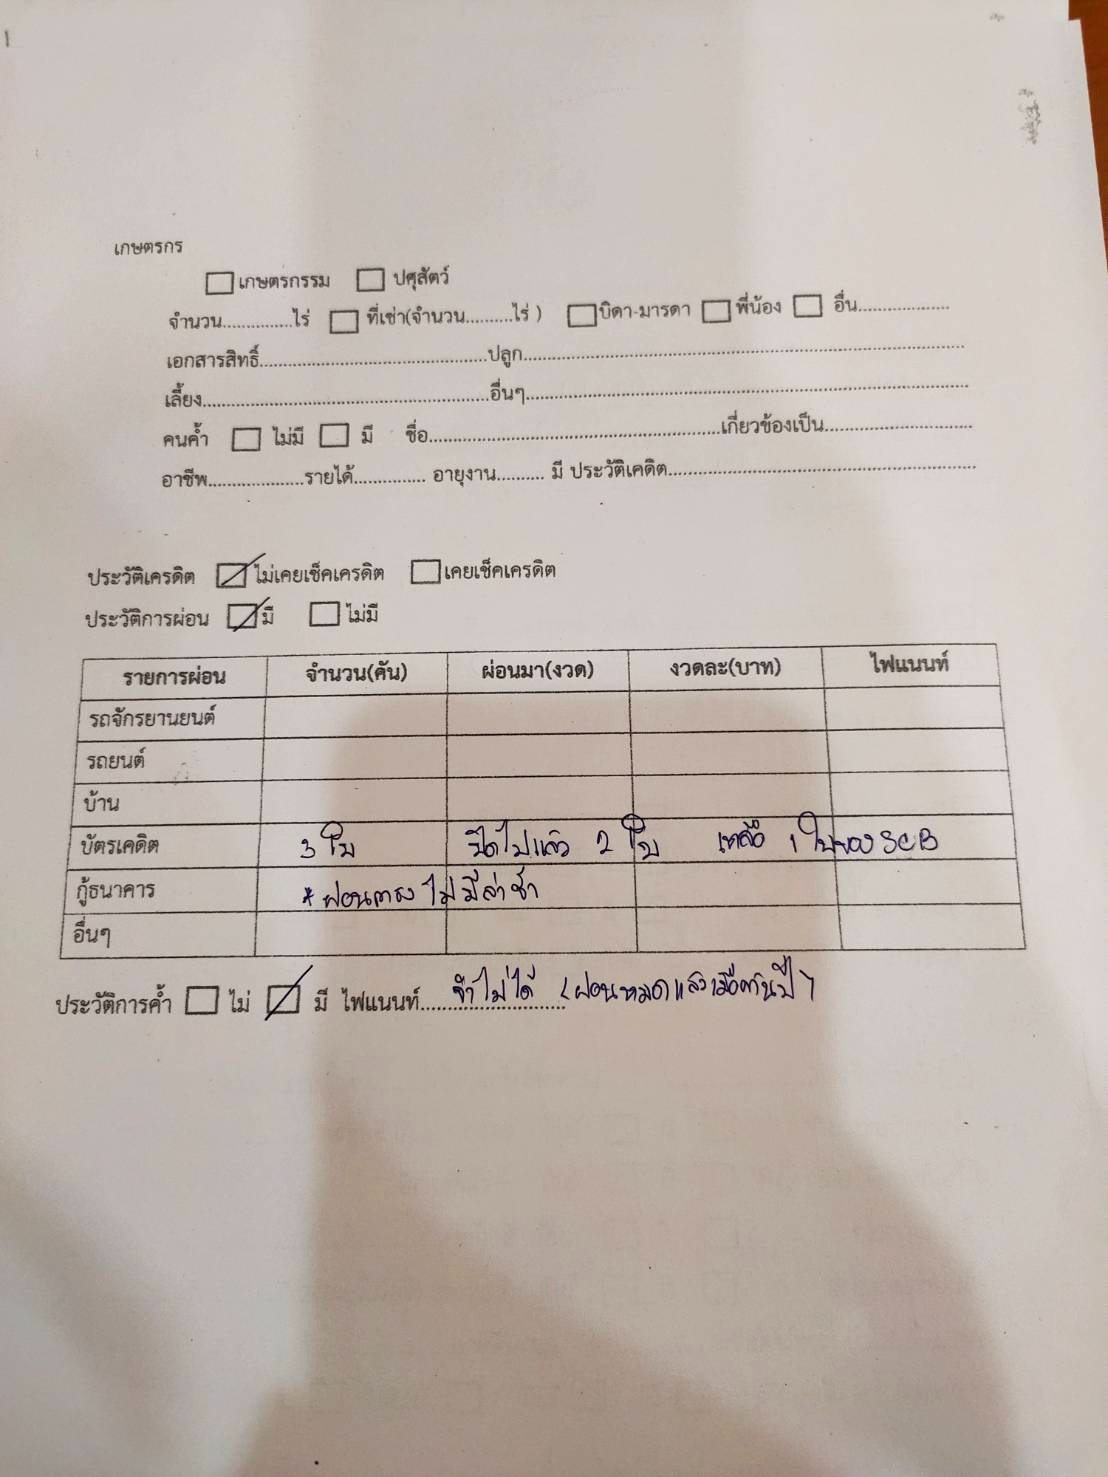 เกษตรกร
☐ เกษตรกรรม ☐ ปศุสัตว์
จำนวน...............ไร่ ☐ ที่เช่า(จำนวน..........ไร่ ) ☐ บิดา-มารดา ☐ พี่น้อง ☐ อื่น....................
เอกสารสิทธิ์..................................................ปลูก....................................................................................................
เลี้ยง...............................................................อื่นๆ....................................................................................................
คนค้ำ ☐ ไม่มี ☐ มี ชื่อ................................................................เกี่ยวข้องเป็น................................
อาชีพ.....................รายได้................ อายุงาน.......... มี ประวัติเคดิต....................................................................
ประวัติเครดิต ☑ ไม่เคยเช็คเครดิต ☐ เคยเช็คเครดิต
ประวัติการผ่อน ☑ มี ☐ ไม่มี
รายการผ่อน จำนวน(คัน) ผ่อนมา(งวด) งวดละ(บาท) ไฟแนนท์
รถจักรยานยนต์
รถยนต์
บ้าน
บัตรเคดิต 3 ใบ ปิดไปแล้ว 2 ใบ เหลือ 1 ใบของ SCB
กู้ธนาคาร * ผ่อนตรง ไม่มีล่าช้า
อื่นๆ
ประวัติการค้ำ ☐ ไม่ ☑ มี ไฟแนนท์....จำไม่ได้ (ผ่อนหมดแล้วเมื่อต้นปี)